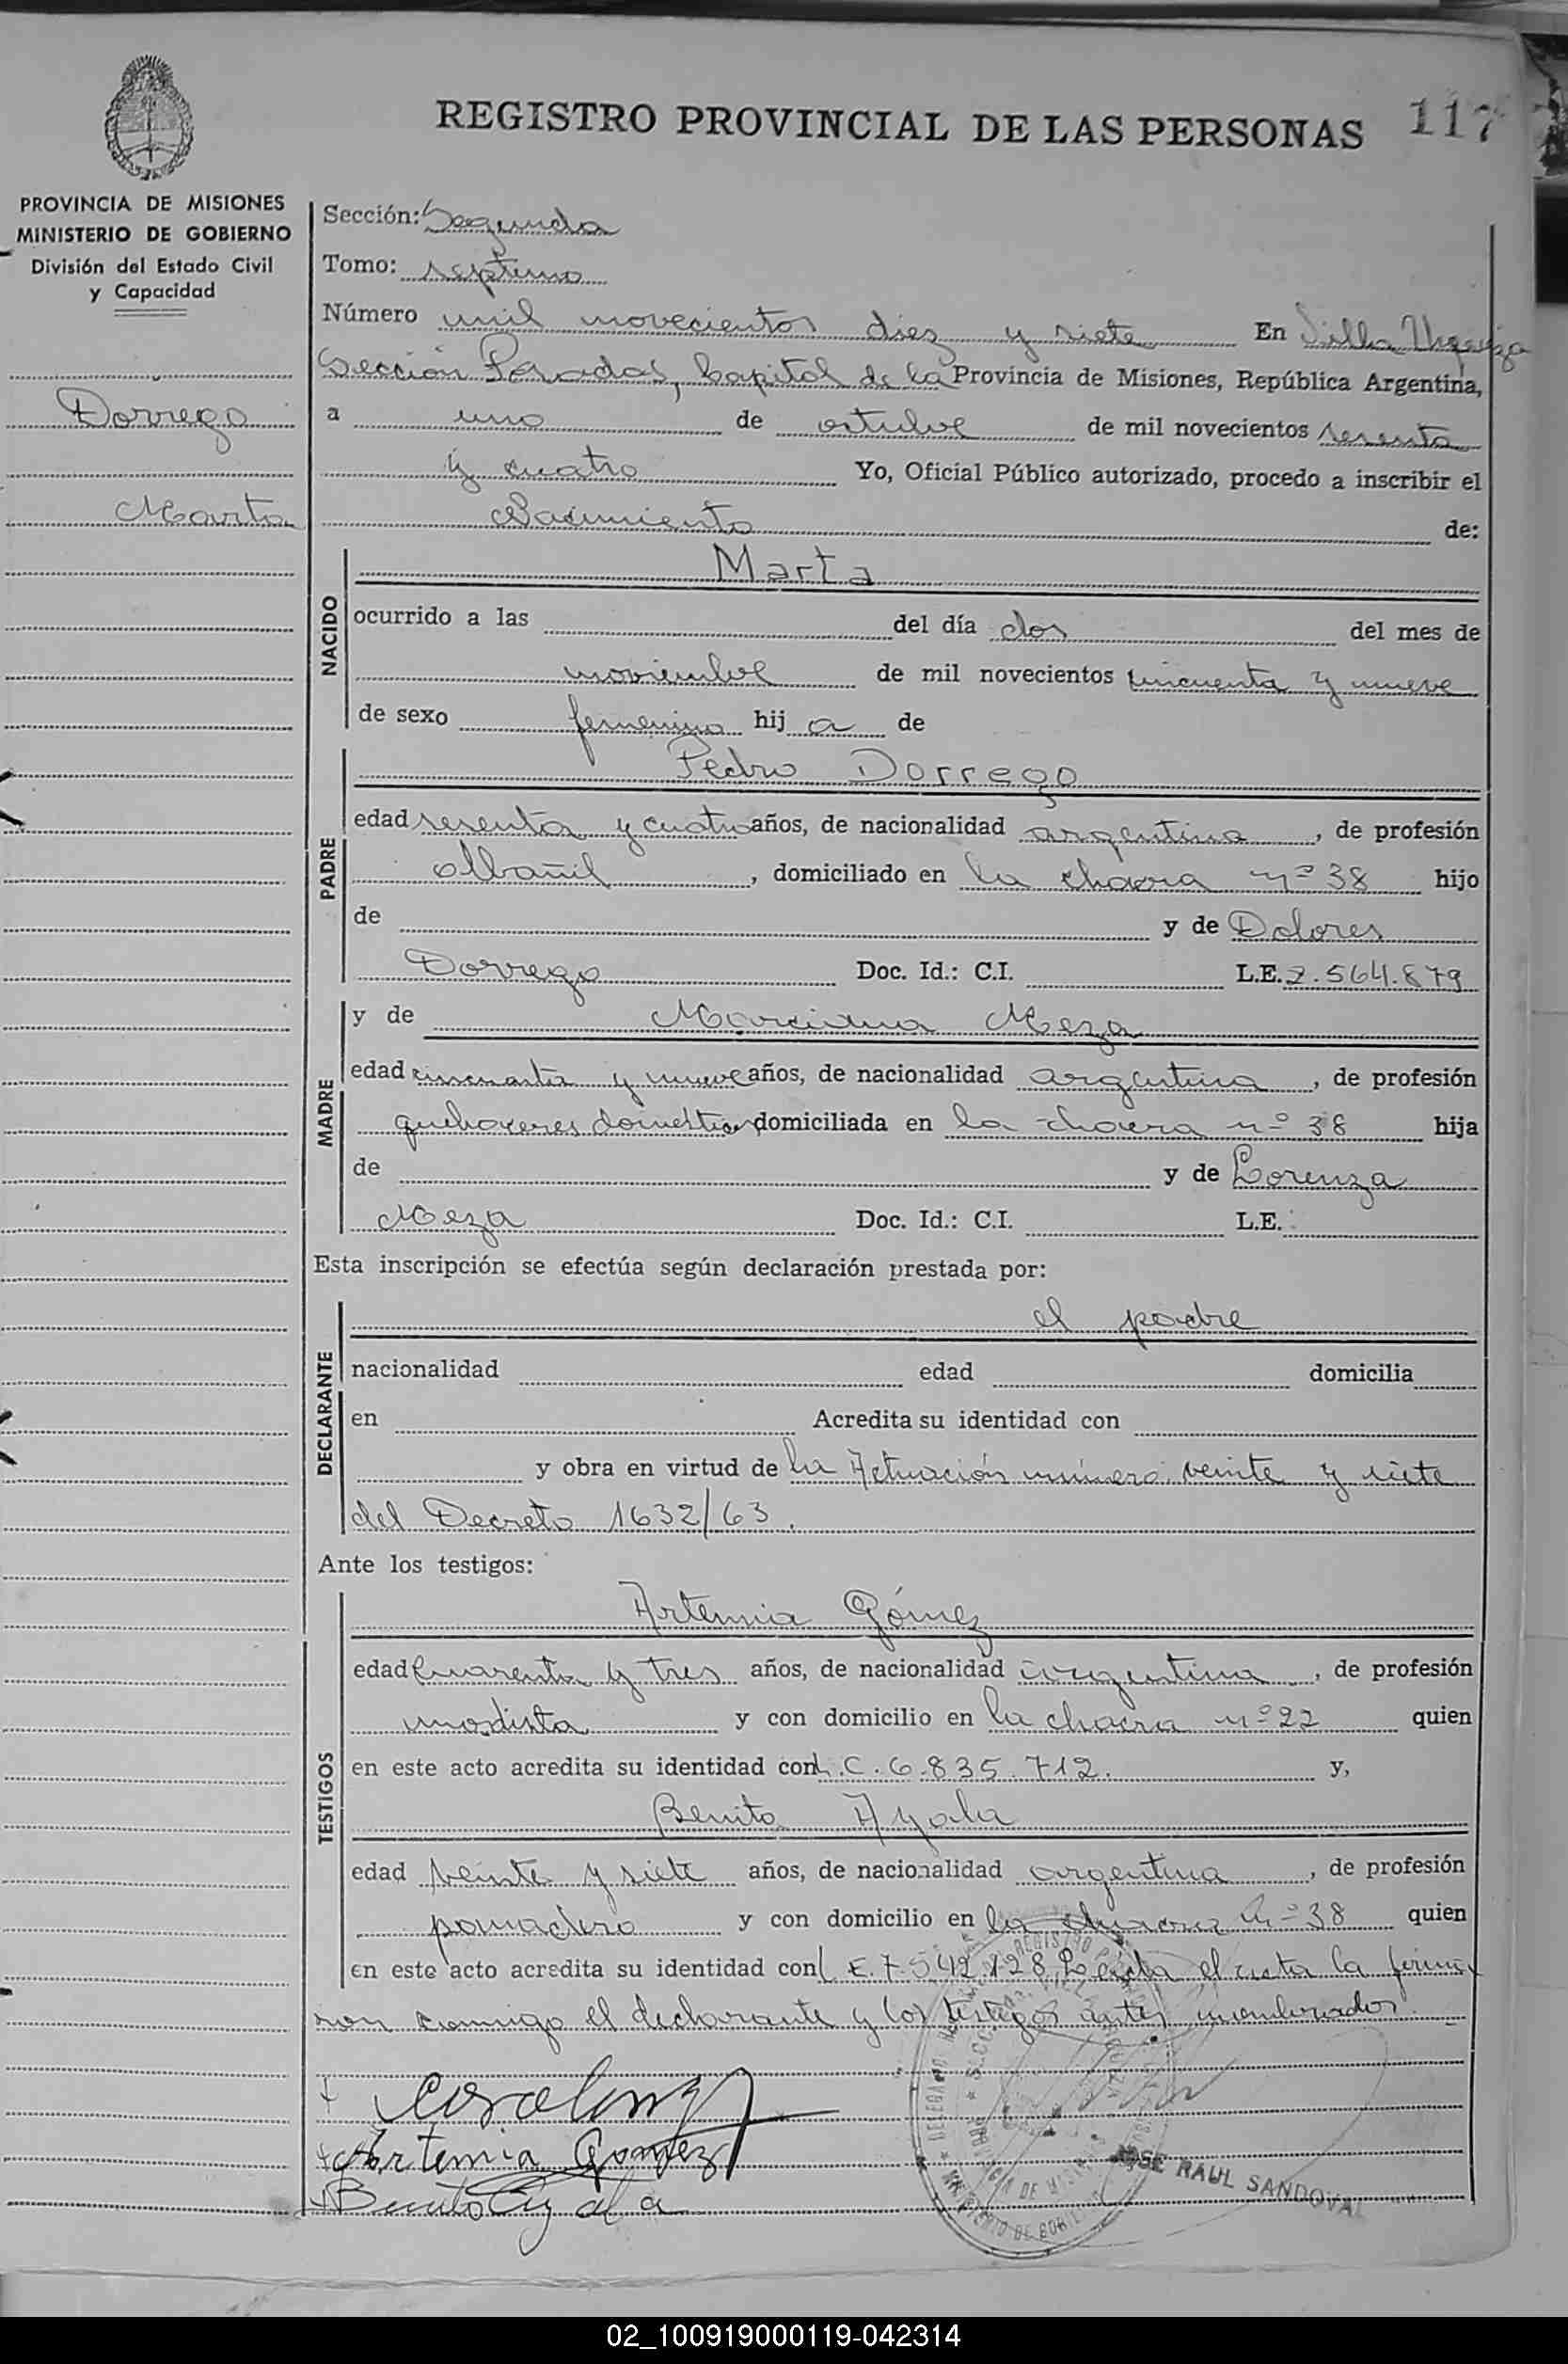 REGISTRO PROVINCIAL DE LAS PERSONAS 117
PROVINCIA DE MISIONES
MINISTERIO DE GOBIERNO
División del Estado Civil
y Capacidad
Dorrego
Marta
Sección: Segunda
Tomo: septimo
Número mil novecientos diez y siete En Villa Urquiza
Sección Posadas, Capital de la Provincia de Misiones, República Argentina,
a uno de octubre de mil novecientos sesenta
y cuatro Yo, Oficial Público autorizado, procedo a inscribir el
Nacimiento de:
NACIDO
Marta
ocurrido a las del día dos del mes de
noviembre de mil novecientos cincuenta y nueve
de sexo femenino hij a de
PADRE
Pedro Dorrego
edad sesenta y cuatro años, de nacionalidad argentina, de profesión
albañil, domiciliado en la chacra nº 38 hijo
de y de Dolores
Dorrego Doc. Id.: C.I. L.E. 2.564.879
MADRE
y de Marciana Meza
edad cincuenta y nueve años, de nacionalidad argentina, de profesión
quehaceres domésticos domiciliada en la chacra nº 38 hija
de y de Lorenza
Meza Doc. Id.: C.I. L.E.
Esta inscripción se efectúa según declaración prestada por:
DECLARANTE
el padre
nacionalidad edad domicilia
en Acredita su identidad con
y obra en virtud de la Actuación número veinte y siete
del Decreto 1632/63.
Ante los testigos:
TESTIGOS
Artemia Gómez
edad cuarenta y tres años, de nacionalidad argentina, de profesión
modista y con domicilio en la chacra nº 22 quien
en este acto acredita su identidad con L.C. 6.835.712. y,
Benito Ayala
edad veinte y siete años, de nacionalidad argentina, de profesión
panadero y con domicilio en la chacra nº 38 quien
en este acto acredita su identidad con L.E. 7.542.128 Leída el acta la firma
ron conmigo el declarante y los testigos antes nombrados.
Artemia Gomez
Benito Ayala
JOSE RAUL SANDOVAL
02_100919000119-042314